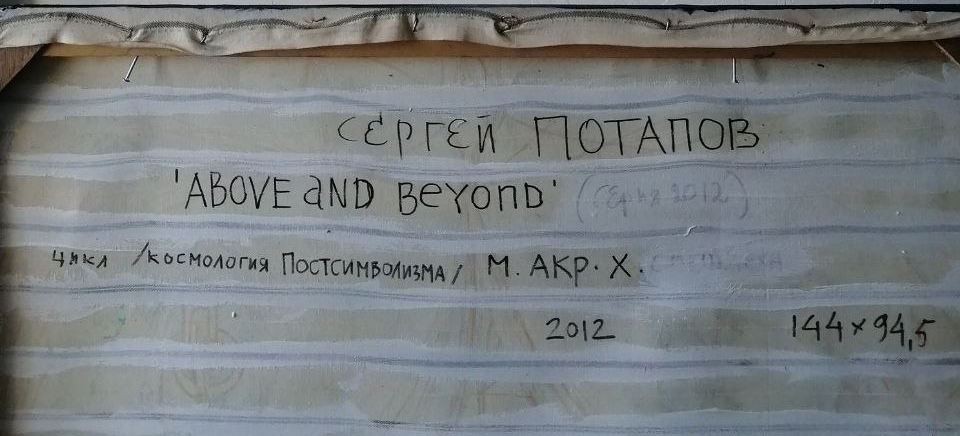 СЕРГЕЙ ПОТАПОВ
'ABOVE aND BeYOND' (Серия 2012)
цикл /космология Постсимволизма/ М. АКР. Х.
2012 144×94,5